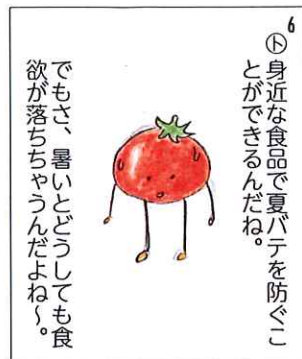 6
㋣身近な食品で夏バテを防ぐこ
とができるんだね。
でもさ、暑いとどうしても食
欲が落ちちゃうんだよね～。